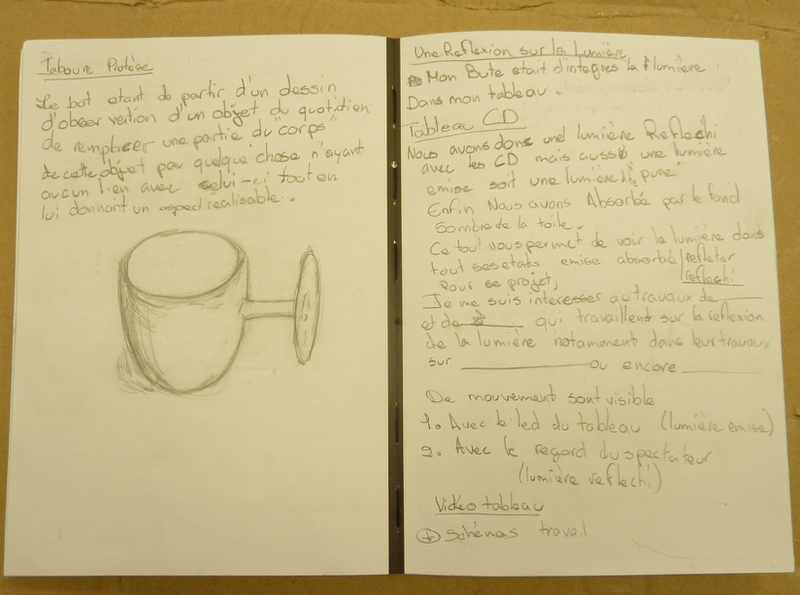 Taboure Protèse
Le bot etant de partir d'un dessin
d'observation d'un objet du quotidien
de remplacer une partie du "corps"
de cette objet par quelque chose n'ayant
aucun lien avec selui-ci tout en
lui donnait un aspect realisable.
Une Reflexion sur la Lumière
Mon Bute etait d'integres la lumière
Dans mon tableau.
Tableau CD
Nous avons donc une lumière Reflechi
avec les CD mais aussi une lumière
emise soit une lumière "pure"
Enfin Nous avons Absorbé par le fond
Sombre de la toile.
Ce tout nous permet de voir la lumière dans
tout ses etats emise absorbé/refleter
/reflechi
Pour se projet,
Je me suis interesser au travaux de
et de qui travaillent sur la reflexion
de la lumière notamment dans leur travaux
sur ou encore
De mouvement sont visible
1. Avec le led du tableau (lumière emise)
2. Avec le regard du spectateur
(lumière reflechi)
Vidéo tableau
+ Schémas travail